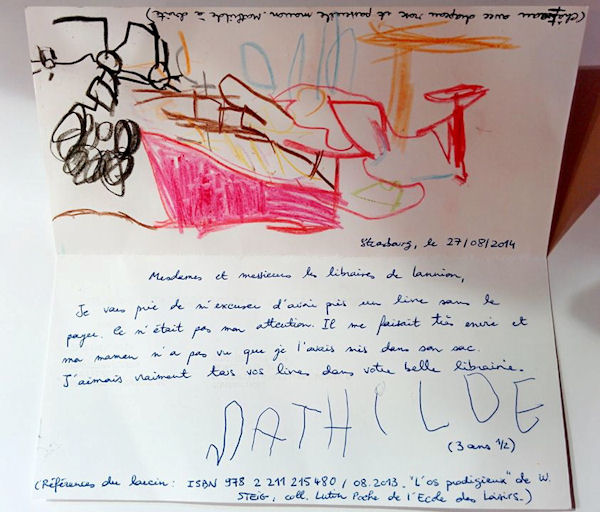 (Château avec chapeau rose et passerelle marron. Mathilde à droite)
Strasbourg, le 27/08/2014
Mesdames et messieurs les libraires de Lannion,
Je vous prie de m'excuser d'avoir pris un livre sans le
payer. Ce n'était pas mon attention. Il me faisait très envie et
ma maman n'a pas vu que je l'avais mis dans son sac.
J'aimais vraiment tous vos livres dans votre belle librairie.
MATHILDE
(3 ans 1/2)
(Références du larcin : ISBN 978 2 211 215480 / 08.2013. "L'os prodigieux" de W.
STEIG, coll. Lutin Poche de l'Ecole des Loisirs.)